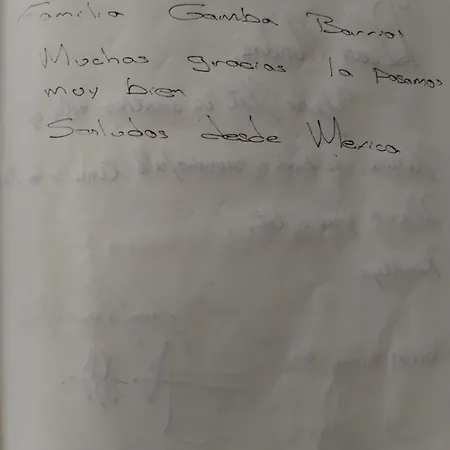 Familia Gamba Barrios
Muchas gracias la pasamos
muy bien
Saludos desde Mexico